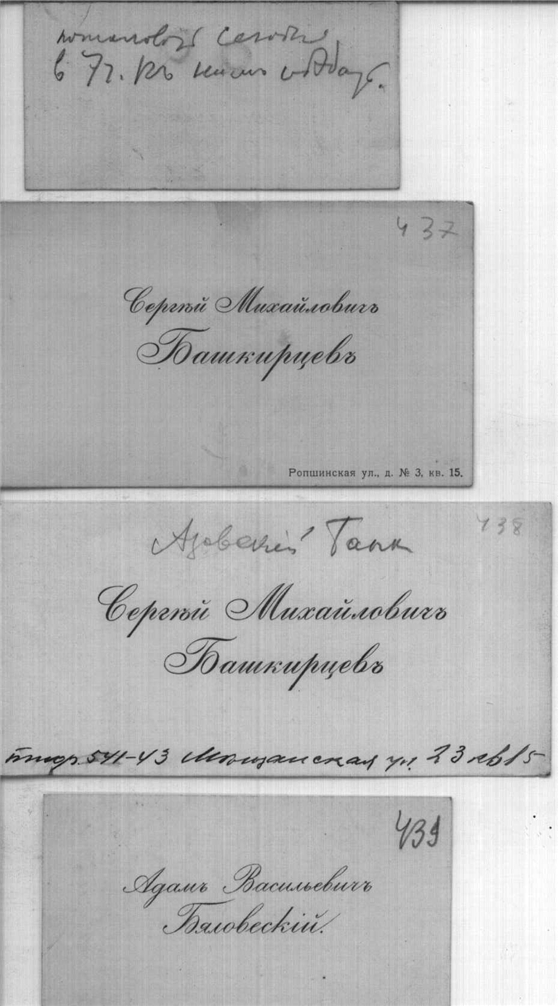 в 7 ч. къ намъ
437
Сергѣй Михайловичъ
Башкирцевъ
Ропшинская ул., д. № 3, кв. 15.
438
Азовскій Банк
Сергѣй Михайловичъ
Башкирцевъ
541-43 Мѣщанская ул. 23 кв 15
439
Адамъ Васильевичъ
Бяловескій.